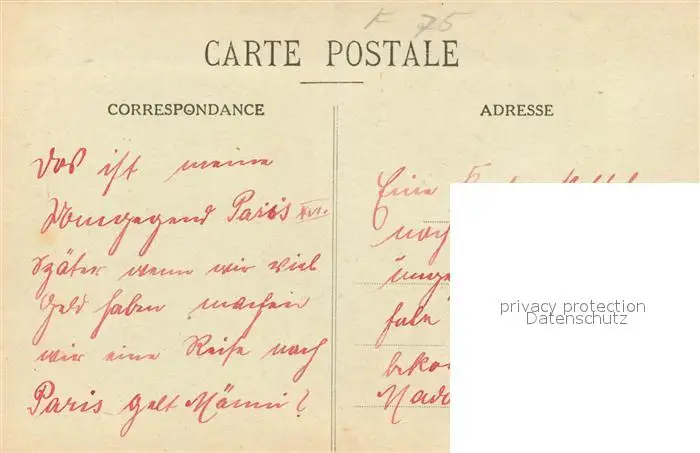 K 75
CARTE POSTALE
CORRESPONDANCE
ADRESSE
Das ist meine
Wohngegend Paris XVI.
Später wenn wir viel
Geld haben machen
wir eine Reise nach
Paris gelt Männi?
Eine
noch
bekom
privacy protection
Datenschutz